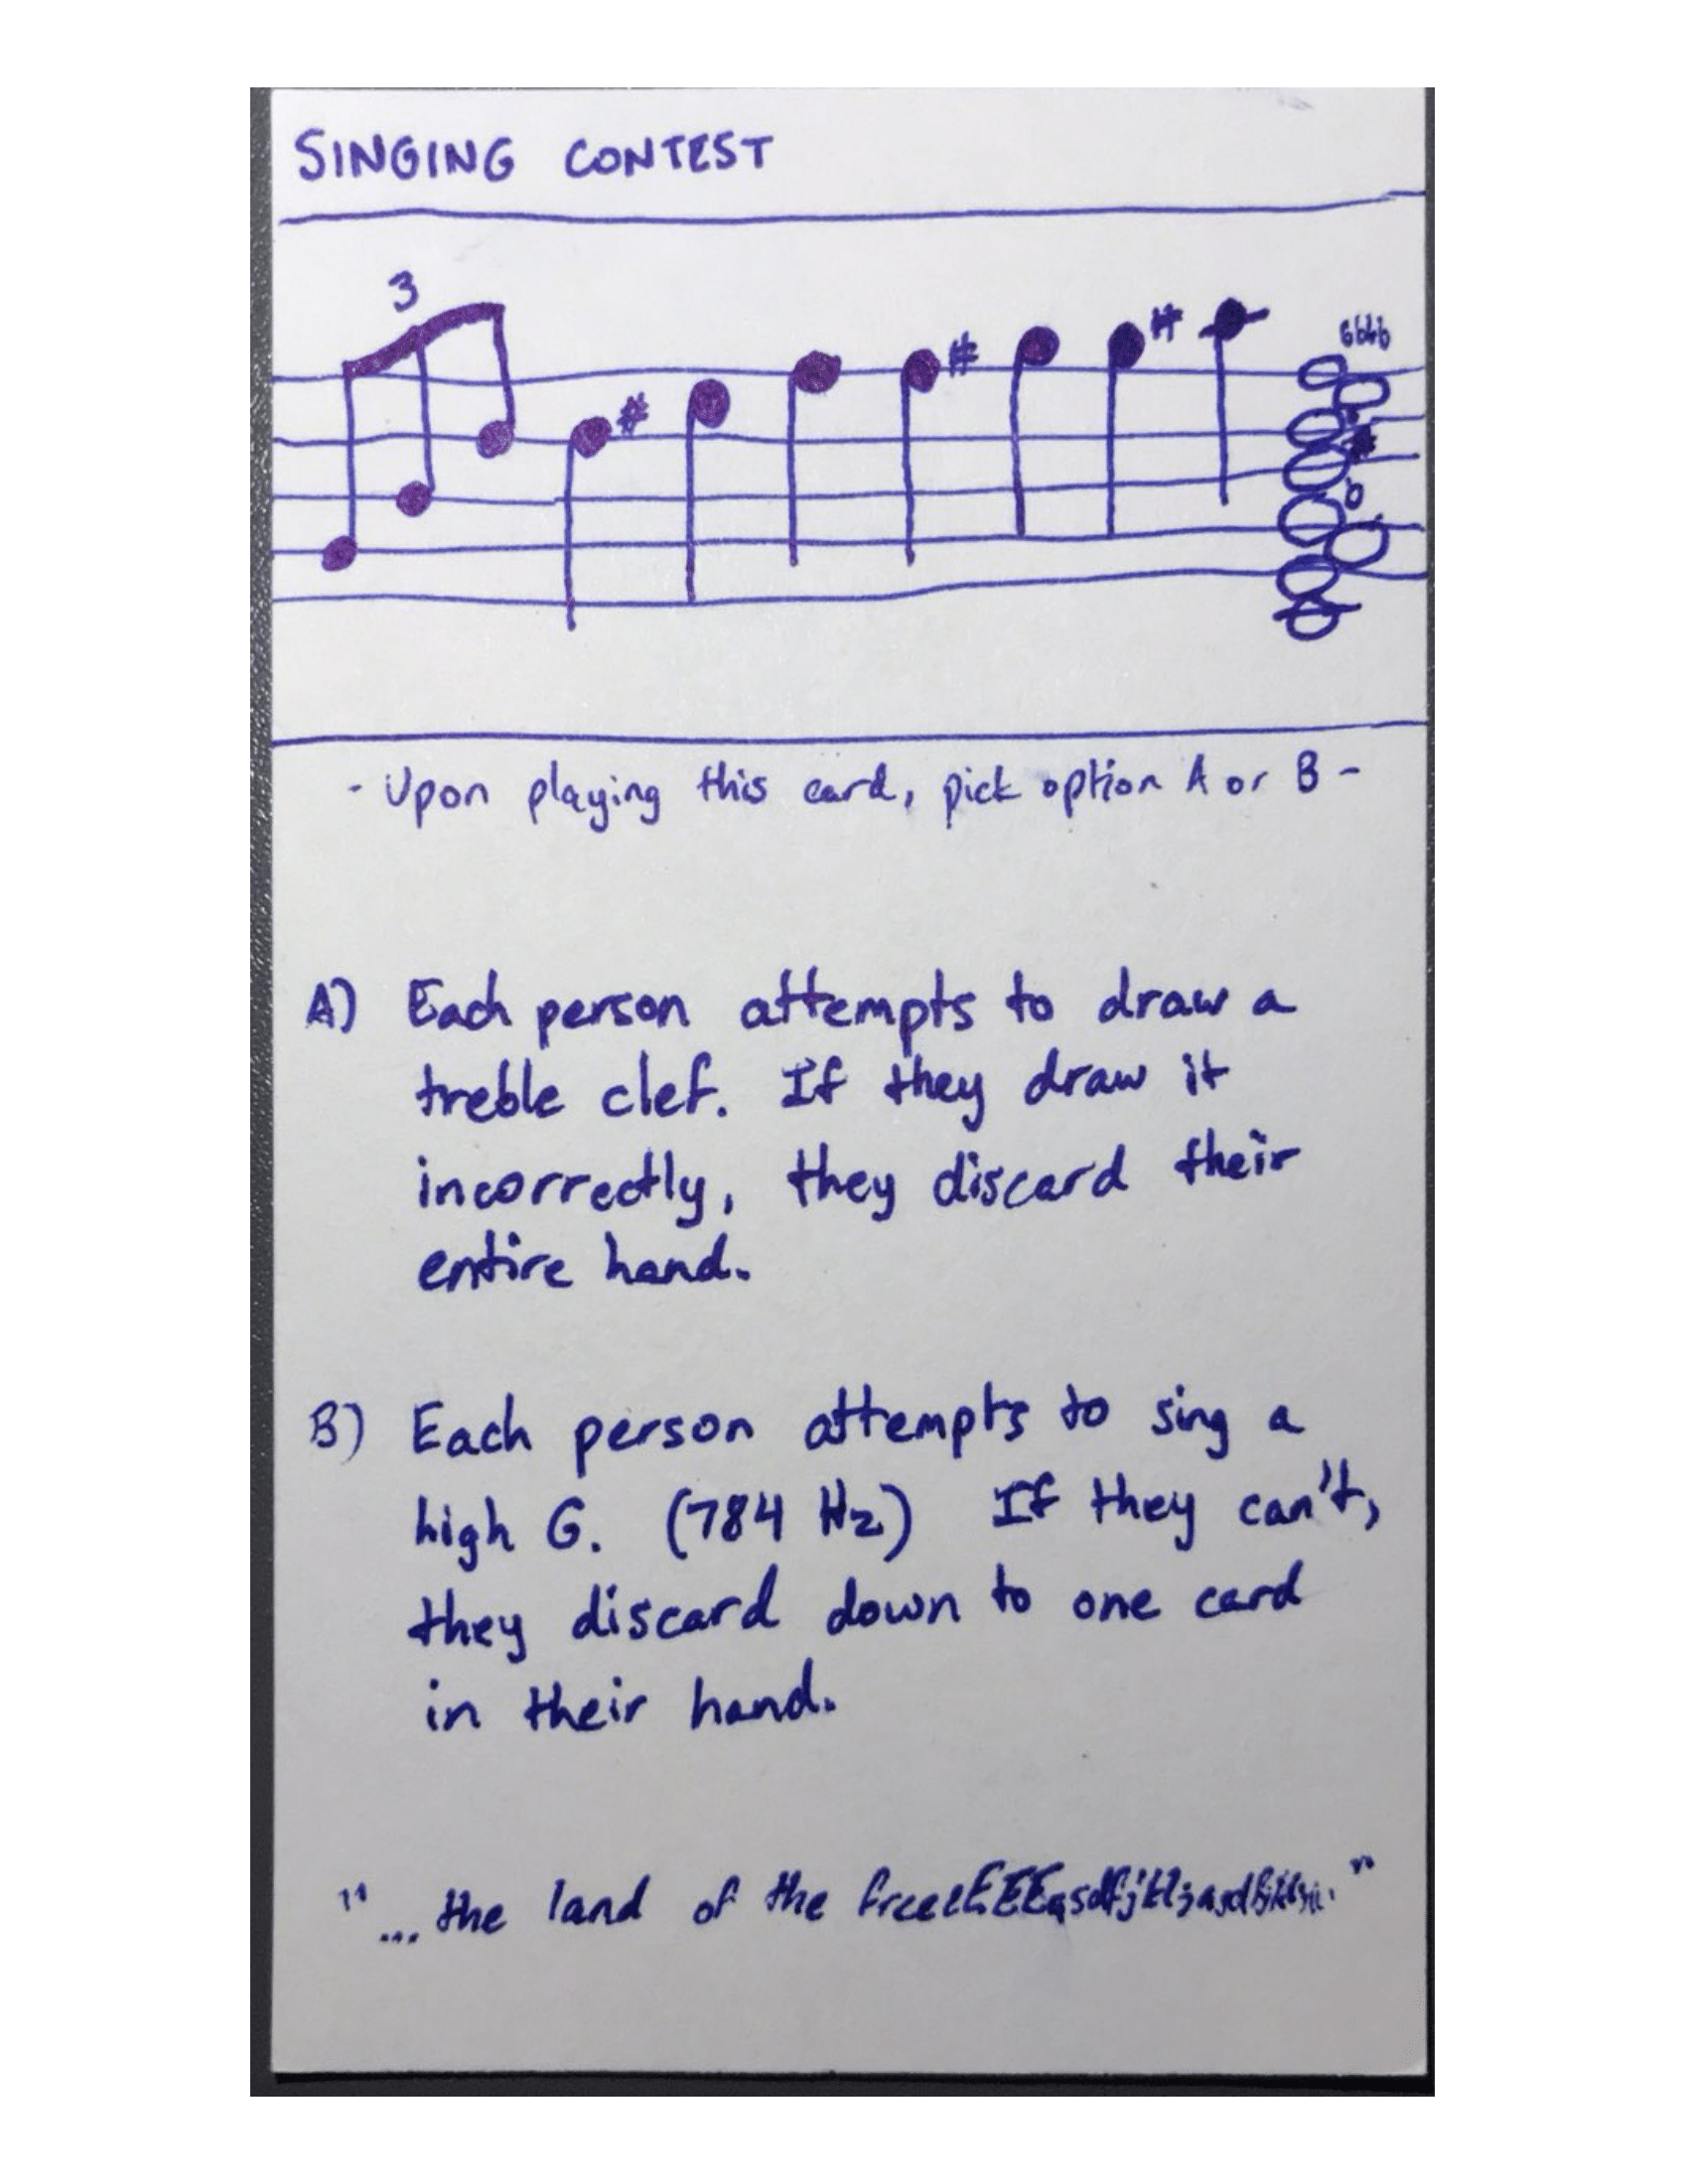 SINGING CONTEST
3
- Upon playing this card, pick option A or B -
A) Each person attempts to draw a
treble clef. If they draw it
incorrectly, they discard their
entire hand.
B) Each person attempts to sing a
high G. (784 Hz) If they can't,
they discard down to one card
in their hand.
"... the land of the